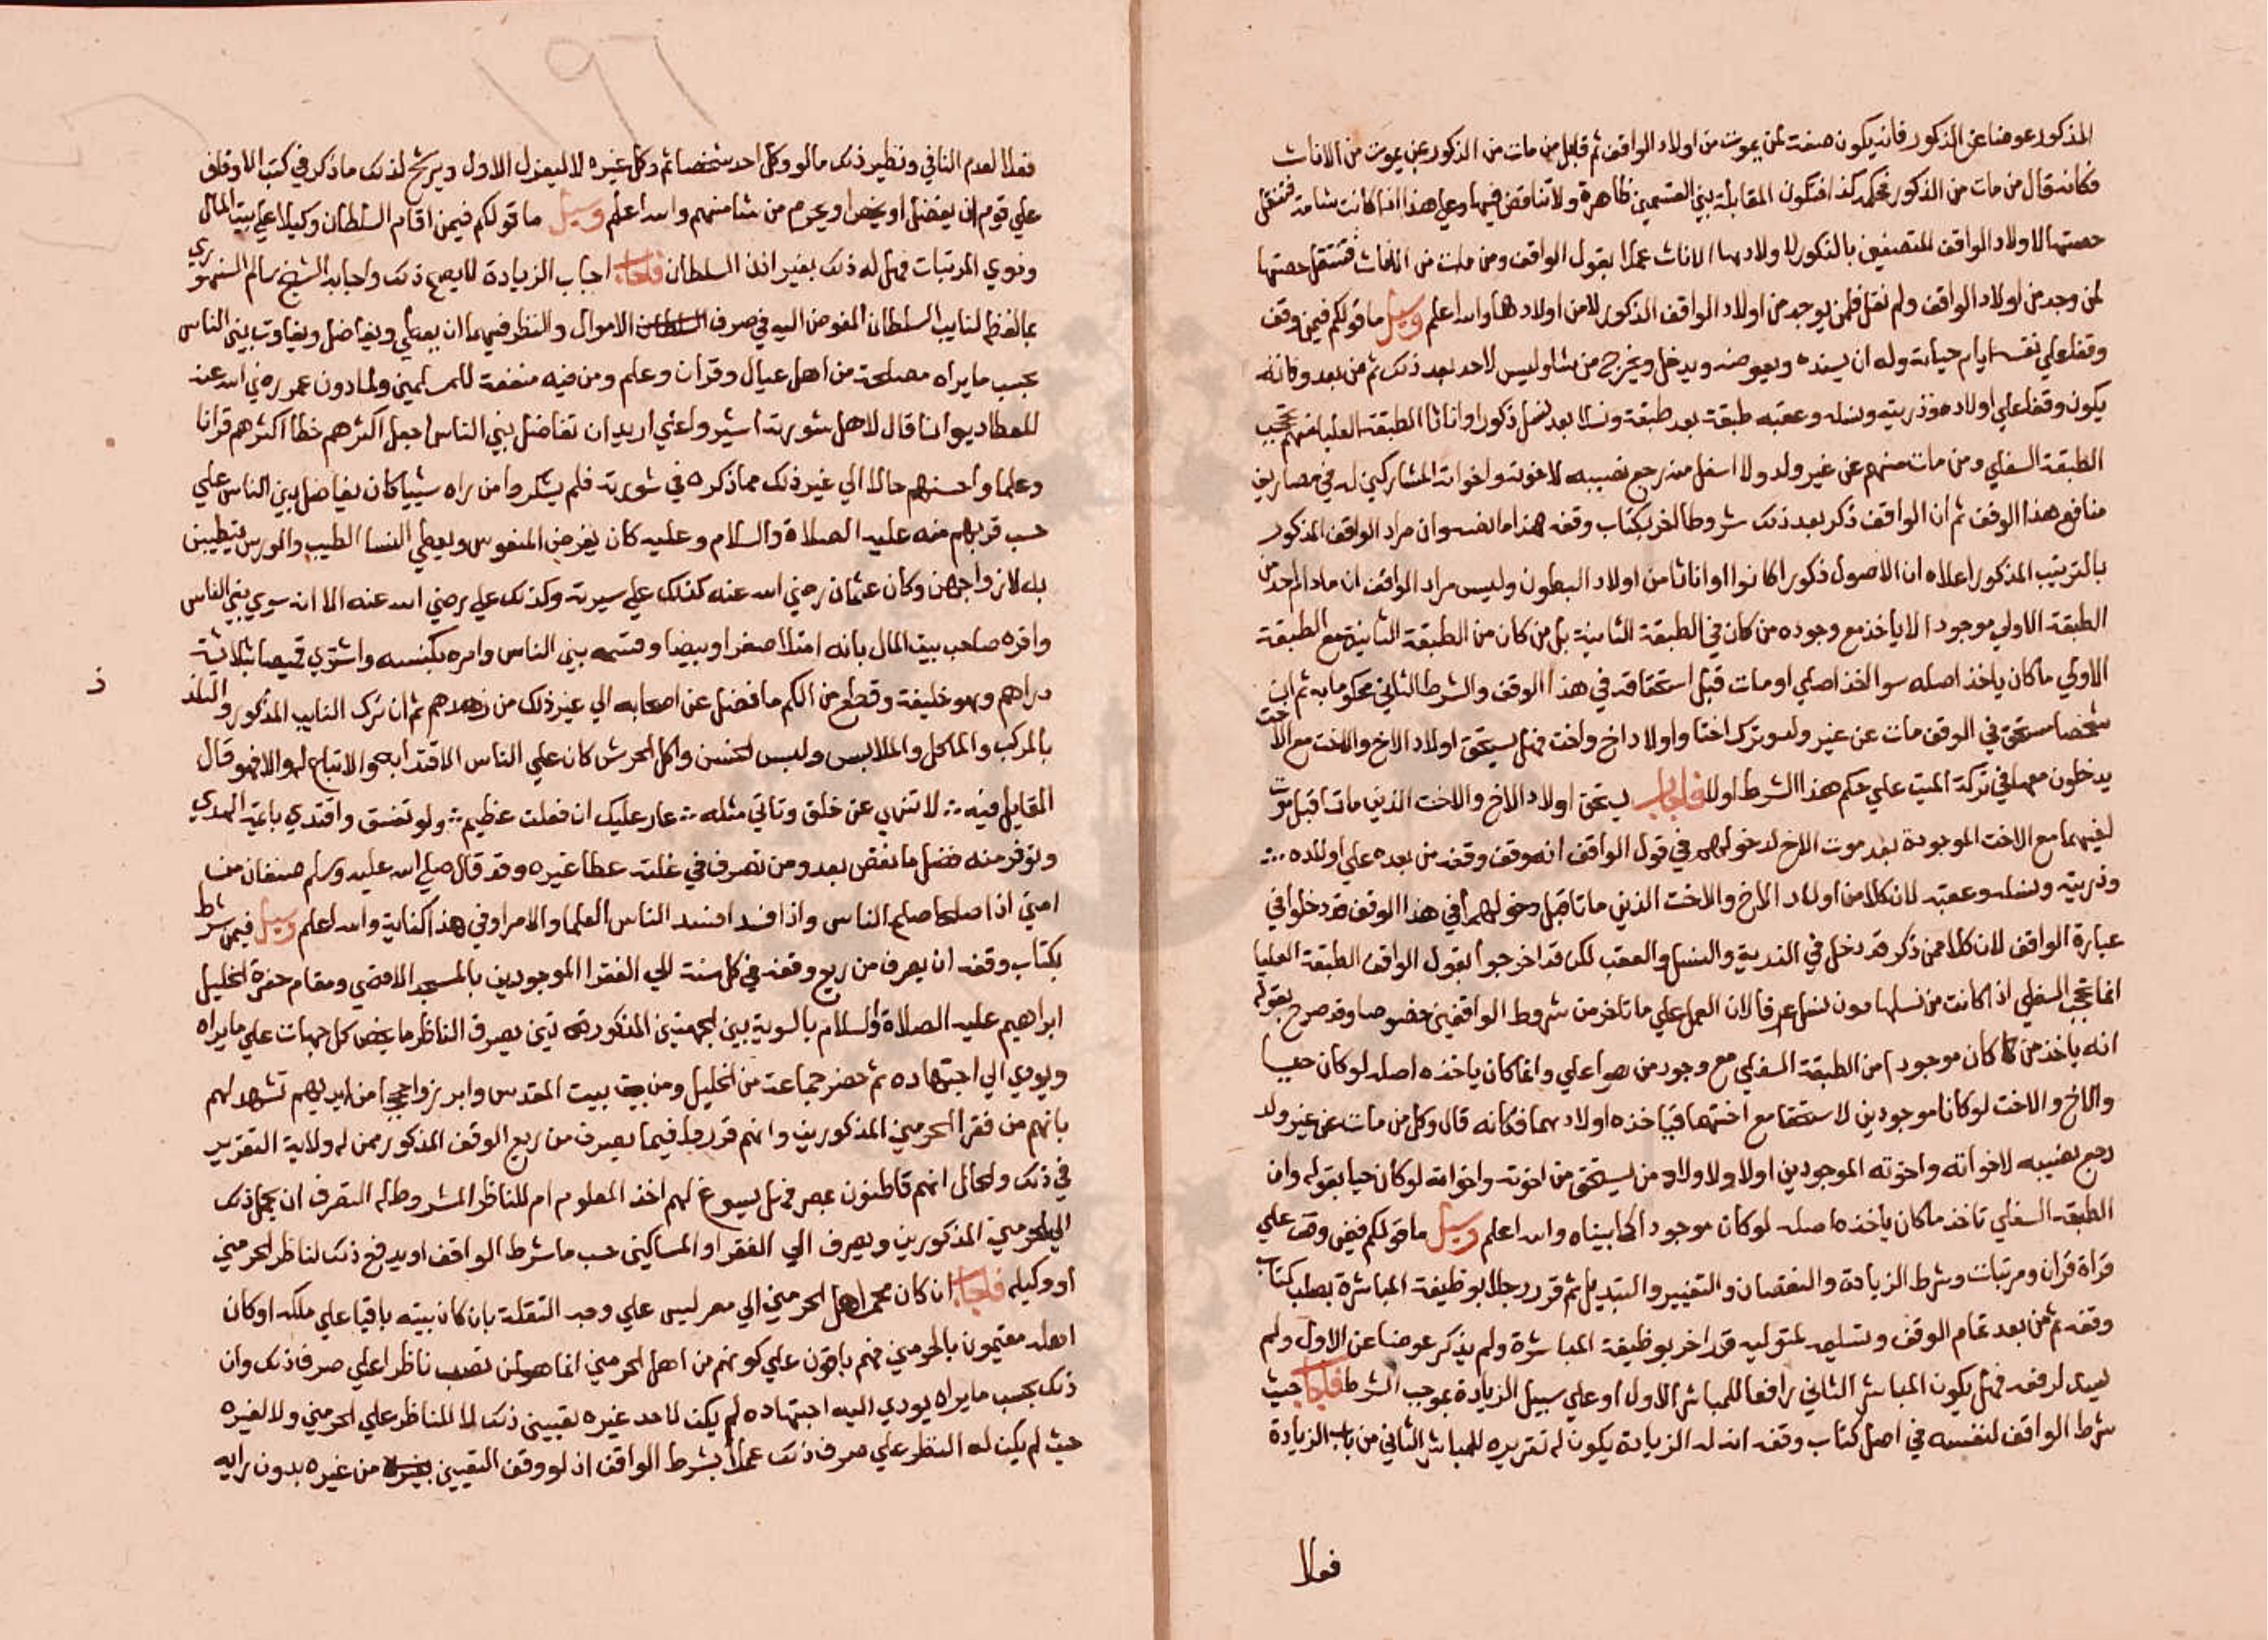 المذكور عوضا عن الذكور فانه يكون صفة لمن يموت من اولاد الواقف ثم قابل من مات من الذكور عن يموت من الاناث
فكانه قال من مات من الذكور فحكمه كذا فتكون المقابلة بين القسمين ظاهرة ولا تناقض فيها وعلى هذا اذا كانت شامة فتنتقل
حصتها لاولاد الواقف المتصفين بالذكور لا ولادها الاناث عملا بقول الواقف ومن مات من الاناث فتنتقل حصتها
لمن وجد من اولاد الواقف ولم نقل فلمن يوجد من اولاد الواقف الذكور لا من اولادها والله اعلم وسيل ما قولكم فيمن وقف
وقفا علي نفسه ايام حياته وله ان يبدله ويعوضه ويدخل ويخرج من شا وليس لاحد بعد ذلك ثم من بعد وفاته
يكون وقفا علي اولاده وذريته ونسله وعقبه طبقة بعد طبقة ونسلا بعد نسل ذكورا واناثا الطبقة العليا منهم تحجب
الطبقة السفلي ومن مات منهم عن غير ولد ولا اسفل منه رجع نصيبه لاخوته واخواته المشاركين له في مصاريف
منافع هذا الوقف ثم ان الواقف ذكر بعد ذلك شروطا اخر بكتاب وقفه هذا ما نصه وان مراد الواقف المذكور
بالترتيب المذكور اعلاه ان الاصول ذكورا كانوا او اناثا من اولاد البطون وليس مراد الواقف ان مادام احد من
الطبقة الاولي موجودا لا ياخذ مع وجوده من كان في الطبقة الثانية بل من كان من الطبقة الثانية مع الطبقة
الاولي ما كان ياخذ اصله سوا اخذ اصله او مات قبل استحقاقه في هذا الوقف والشرط الثاني محكوما به ثم ان
شخصا مستحق في الوقف مات عن غير ولد وترك اختا واولاد اخ واخت فهل يستحق اولاد الاخ والاخت مع الاخت
يدخلون معها في تركة الميت علي حكم هذا الشرط اولا فاجاب يستحق اولاد الاخ والاخت الذين ماتا قبل موت
اخيهما مع الاخت الموجودة بعد موت الاخ لدخولهم في قول الواقف انه وقف وقفه من بعده علي اولاده
وذريته ونسله وعقبه لان كلا من اولاد الاخ والاخت الذين ماتا قبل دخولهما في هذا الوقف قد دخلوا في
عبارة الواقف لان كلا ممن ذكر قد دخل في الذرية والنسل والعقب لكن قد اخرجوا بقول الواقف الطبقة العليا
انما تحجب السفلي اذا كانت من نسلها دون نسل غيرها لان العمل علي ما تاخر من شروط الواقفين خصوصا وقد صرح بقوله
انه ياخذ من كان موجودا من الطبقة السفلي مع وجود من هو اعلي وانما كان ياخذه اصله لو كان حيا
والاخ والاخت لو كانا موجودين لاستحقا مع اختهما فياخذه اولادهما فكانه قال وكل من مات عن غير ولد
رجع نصيبه لاخواته واخوته الموجودين اولا ولاولاد من يستحق من اخوته واخواته لو كان حيا بقوله وان
الطبقة السفلي تاخذ ما كان ياخذه اصله لو كان موجودا كما بيناه والله اعلم وسيل ما قولكم فيمن وقف علي
قراة قران ومرتبات وشرط الزيادة والنقصان والتغيير والتبديل ثم قرر رجلا بوظيفة المباشرة بصلب كتاب
وقفه ثم من بعد تمام الوقف وتسليمه لمتوليه قرر اخر بوظيفة المباشرة ولم يذكر عوضا عن الاول ولم
يبد لرفعه فهل يكون المباشر الثاني رافعا للمباشر الاول او علي سبيل الزيادة بموجب الشرط فاجاب حيث
شرط الواقف لنفسه في اصل كتاب وقفه ان له الزيادة يكون له تقريره للمباشر الثاني من باب الزيادة
فعلا
١٩٦
فعلا لعدم النافي ونظير ذلك ما لو وكل احد شخصا ثم وكل غيره لا ينعزل الاول ويرشح لذلك ما ذكر في كتب الاوقاف
علي قوم ان يفضل او يخص او يحرم من شا منهم والله اعلم وسيل ما قولكم فيمن اقام السلطان وكيلا علي بيت المال
وذوي المرتبات فهل له ذلك بغير اذن السلطان فاجاب اجاب الزيادة لا يصح ذلك واجابه الشيخ سالم السنهوري
بما لفظه لنايب السلطان المفوض اليه في صرف الاموال والنظر فيهما ان يعطي ويفاضل ويفاوت بين الناس
بحسب ما يراه مصلحة من اهل عيال وقران وعلم ومن فيه منفعة للمسلمين ولما دون عمر رضي الله عنه
للعطا ديوانا قال لاهل شورته اشيروا علي اريد ان تفاضل بين الناس اجعل اكثرهم خطا اكثرهم قرانا
وعلما واحسنهم حالا الي غير ذلك مما ذكره في شورته فلم ينكروا من راه شييا كان يفاضل بين الناس علي
حسب قربهم منه عليه الصلاة والسلام وعليه كان يفرض المنفوس ويعطي النسا الطيب والورس يتطيبن
به لازواجهن وكان عثمان رضي الله عنه كذلك علي سيرته وكذلك علي رضي الله عنه الا انه سوي بين الناس
واقره صاحب بيت المال بانه امتلا صفرا وبيضا وقسمه بين الناس وامره بكنسه واشتري قميصا بثلاثة
دراهم وهو خليفة وقطع من الكم ما فضل عن اصابعه الي غير ذلك من زهدهم ثم ان ترك النايب المذكور والتلذذ
بالمركب والماكل والملابس ولبس الخشن واكل الحرش كان علي الناس الاقتدا به والاتباع له والا فهو قال
القايل فيه لا تنهي عن خلق وتاتي مثله عار عليك ان فعلت عظيم ولو تعفف واقتدي باية الهدي
وتوفر منه فضل ما نقص بعد ومن تصرف في غلته عطا غيره وقد قال صلي الله عليه وسلم صنفان من
امتي اذا صلحا صلح الناس واذا فسدا فسد الناس العلما والامرا وفي هذا كفاية والله اعلم وسيل فيمن شرط
بكتاب وقفه ان يصرف من ريع وقفه في كل سنة الي الفقرا الموجودين بالمسجد الاقصي ومقام حضرة الخليل
ابراهيم عليه الصلاة والسلام بالسوية بين الجهتين المذكورتين يصرف الناظر ما يخص كل جهات علي ما يراه
ويودي الي اجتهاده ثم حضر جماعة من الخليل ومن بيت المقدس وابرزوا حججا من ايديهم تشهد لهم
بانهم من فقرا الحرمين المذكورين وانهم قرروا فيما يصرف من ريع الوقف المذكور ممن له ولاية التقرير
في ذلك والحال انهم قاطنون بمصر فهل يسوغ لهم اخذ المعلوم ام للناظر المشروط له التصرف ان يحمل ذلك
الي الحرمين المذكورين ويصرف الي الفقرا والمساكين حسب ما شرط الواقف او يدفع ذلك لناظر الحرمين
او وكيله فاجاب ان كان مجي اهل الحرمين الي مصر ليس علي وجه النقلة بان كان بيته باقيا علي ملكه او كان
اهله مقيمون بالحرمين فهم باقون علي كونهم من اهل الحرمين انما هو لمن نصب ناظرا علي صرف ذلك وان
ذلك بحسب ما يراه يودي اليه اجتهاده لم يكن لاحد غيره تعيين ذلك لا للناظر علي الحرمين ولا لغيره
حيث لم يكن له النظر علي صرف ذلك عملا بشرط الواقف اذ لو وقف التعيين من غيره بدون رايه